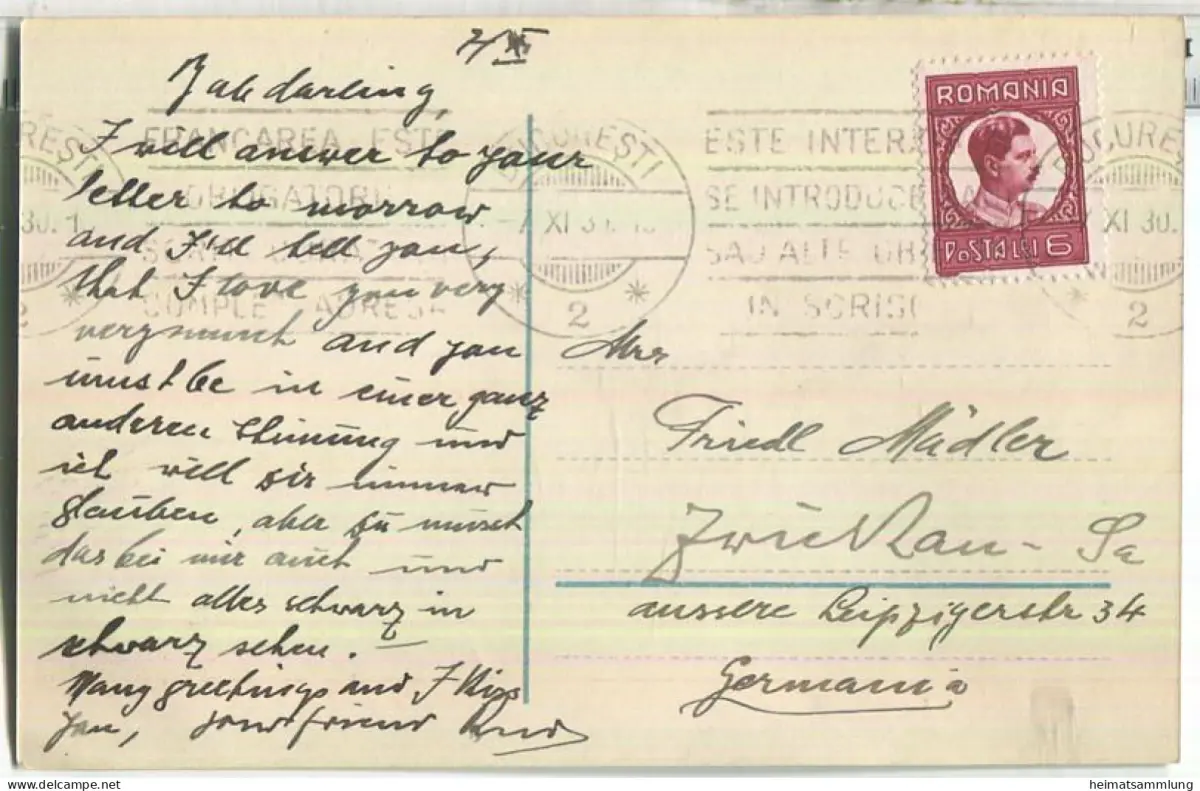 darling,
I will answer to your
letter to morrow
and I'll tell you,
that I love you very
very much and you
must be in einer ganz
anderen Stimung und
ich will dir immer
glauben, aber du musst
das bei mir auch und
nicht alles schwarz in
schwarz sehen.
Many greetings and I kiss
you, your friend
ROMANIA
POSTA LEI 6
FRANCAREA ESTE
OBLIGATORIE
COMPLE ADRESA
BUCUREȘTI
XI 30
2
ESTE INTERZ
SE INTRODUCE
SAU ALTE
IN SCRISO
BUCUREȘTI
XI 30
2
Friedl Mädler
Zwickau - Sa
aussere Leipzigerstr 34
Germania
heimatsammlung